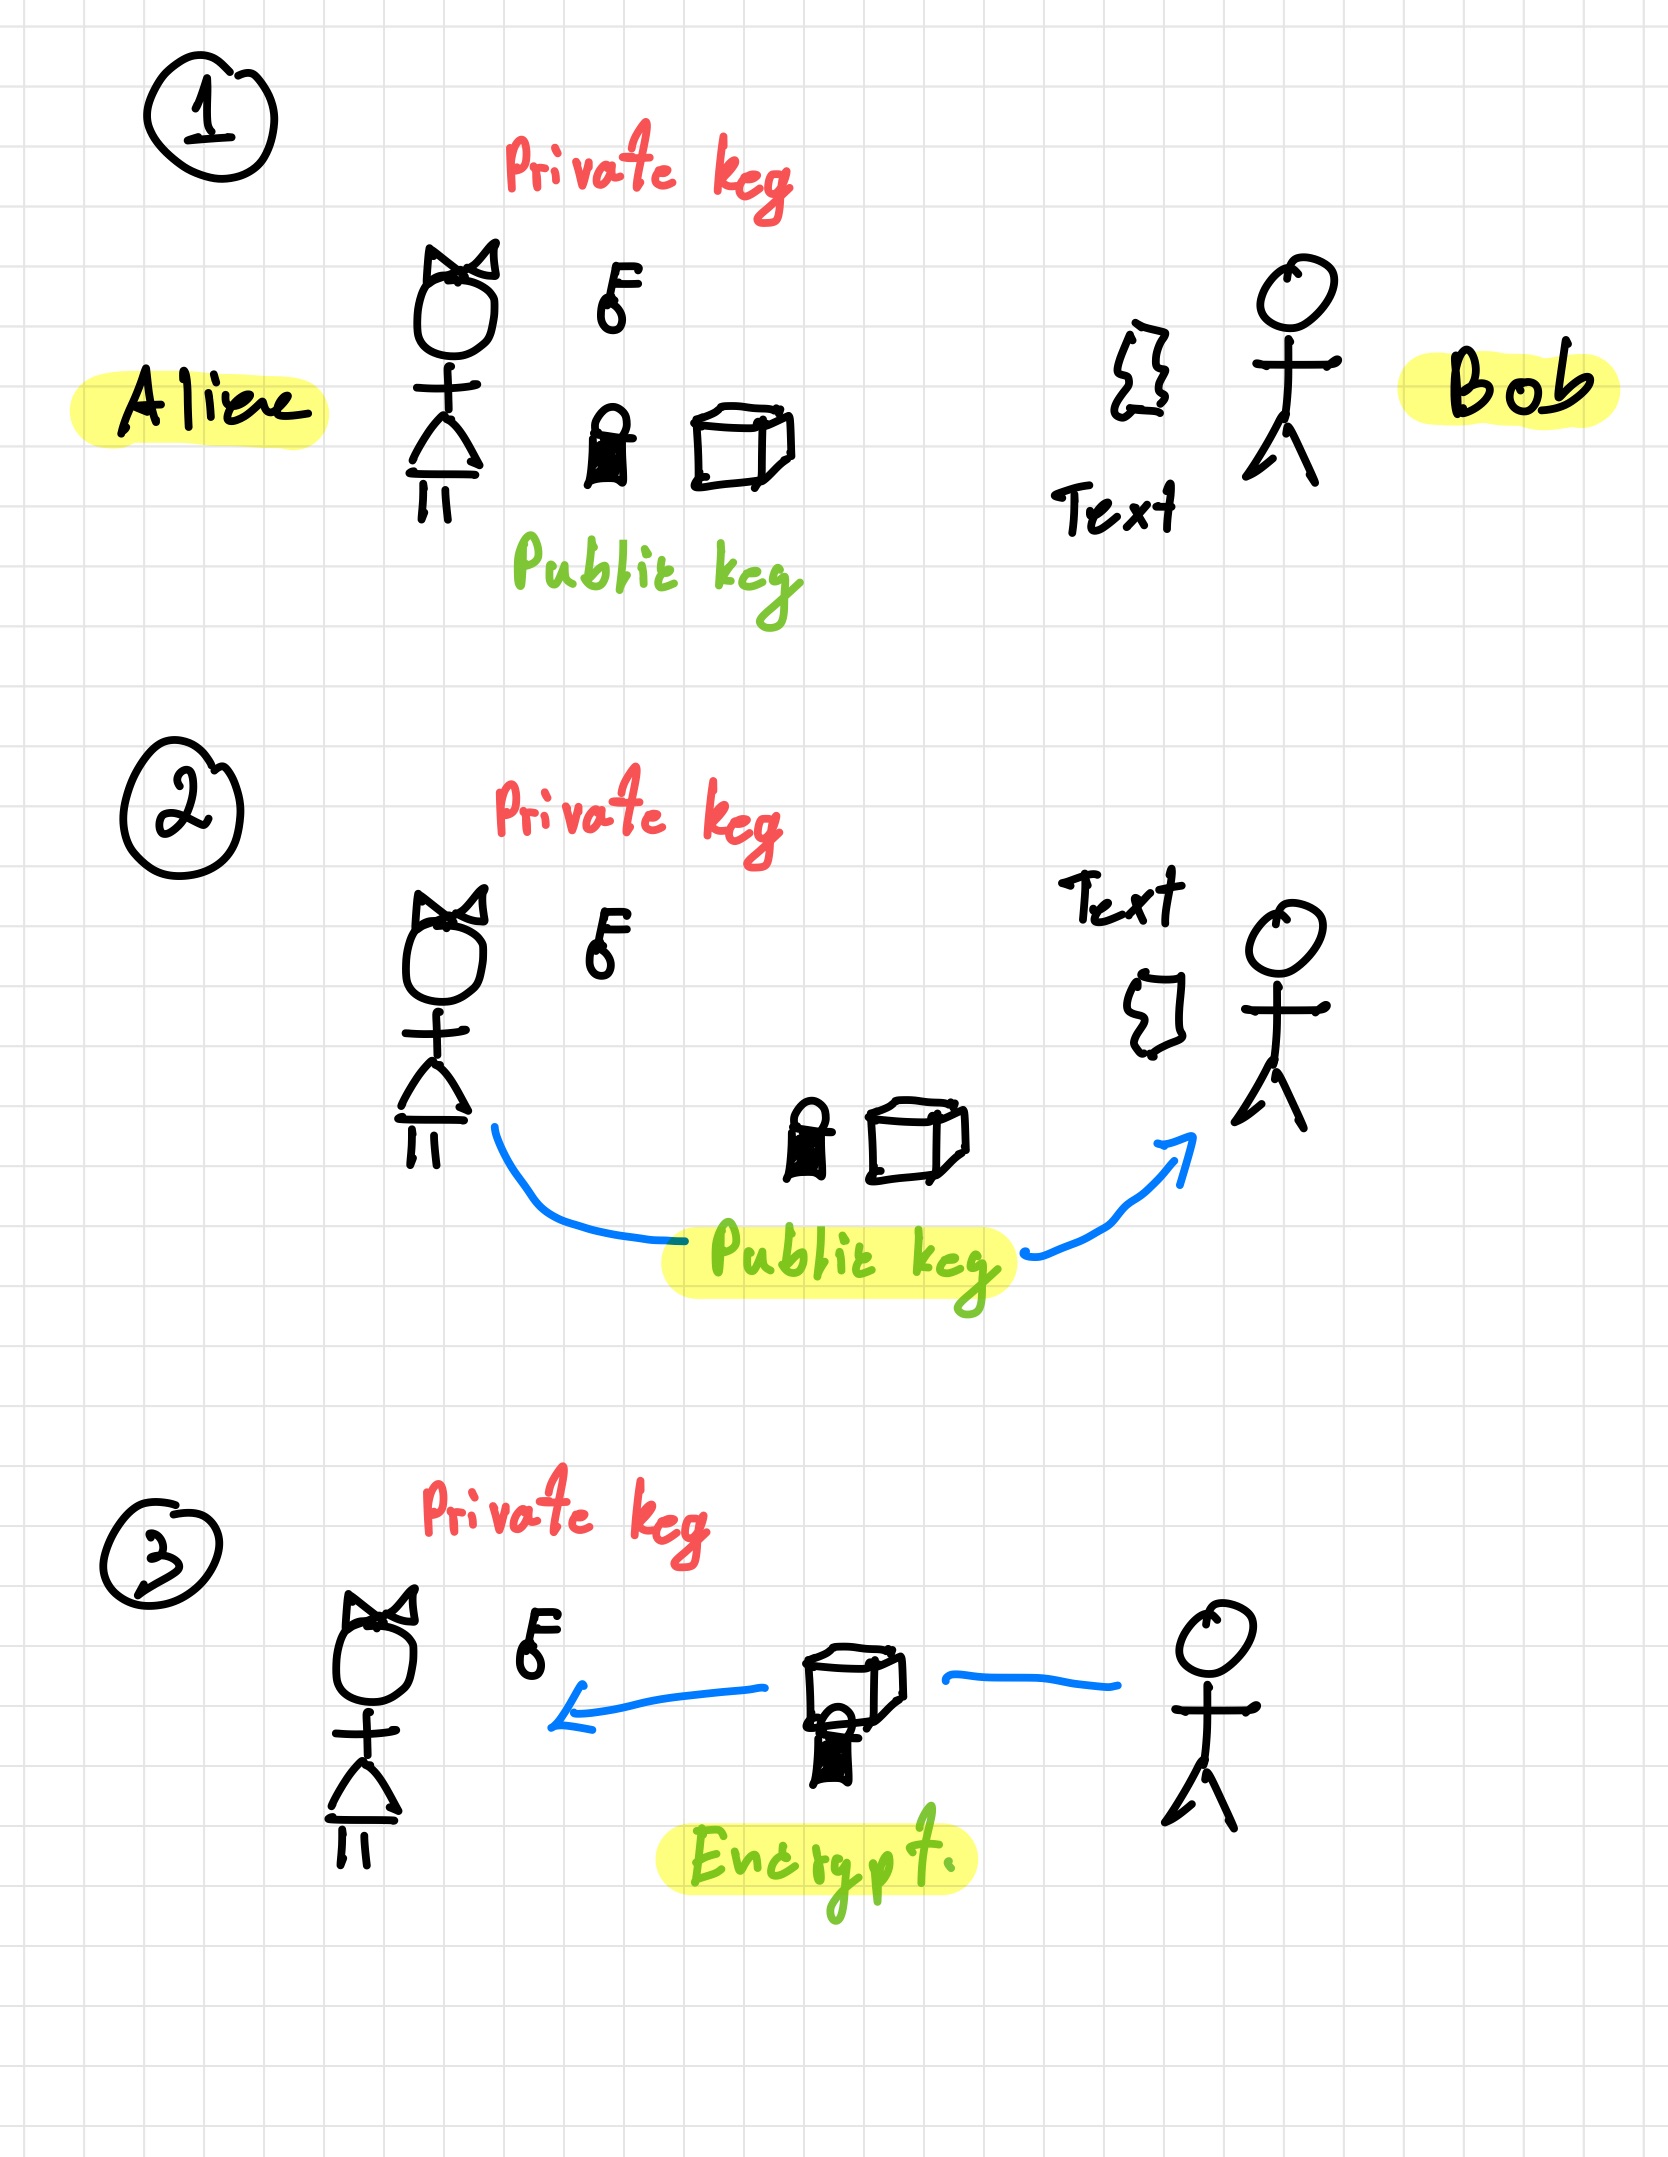 1
Private key
Alice
Bob
Text
Public key
2
Private key
Text
Public key
3
Private key
Encrypt.